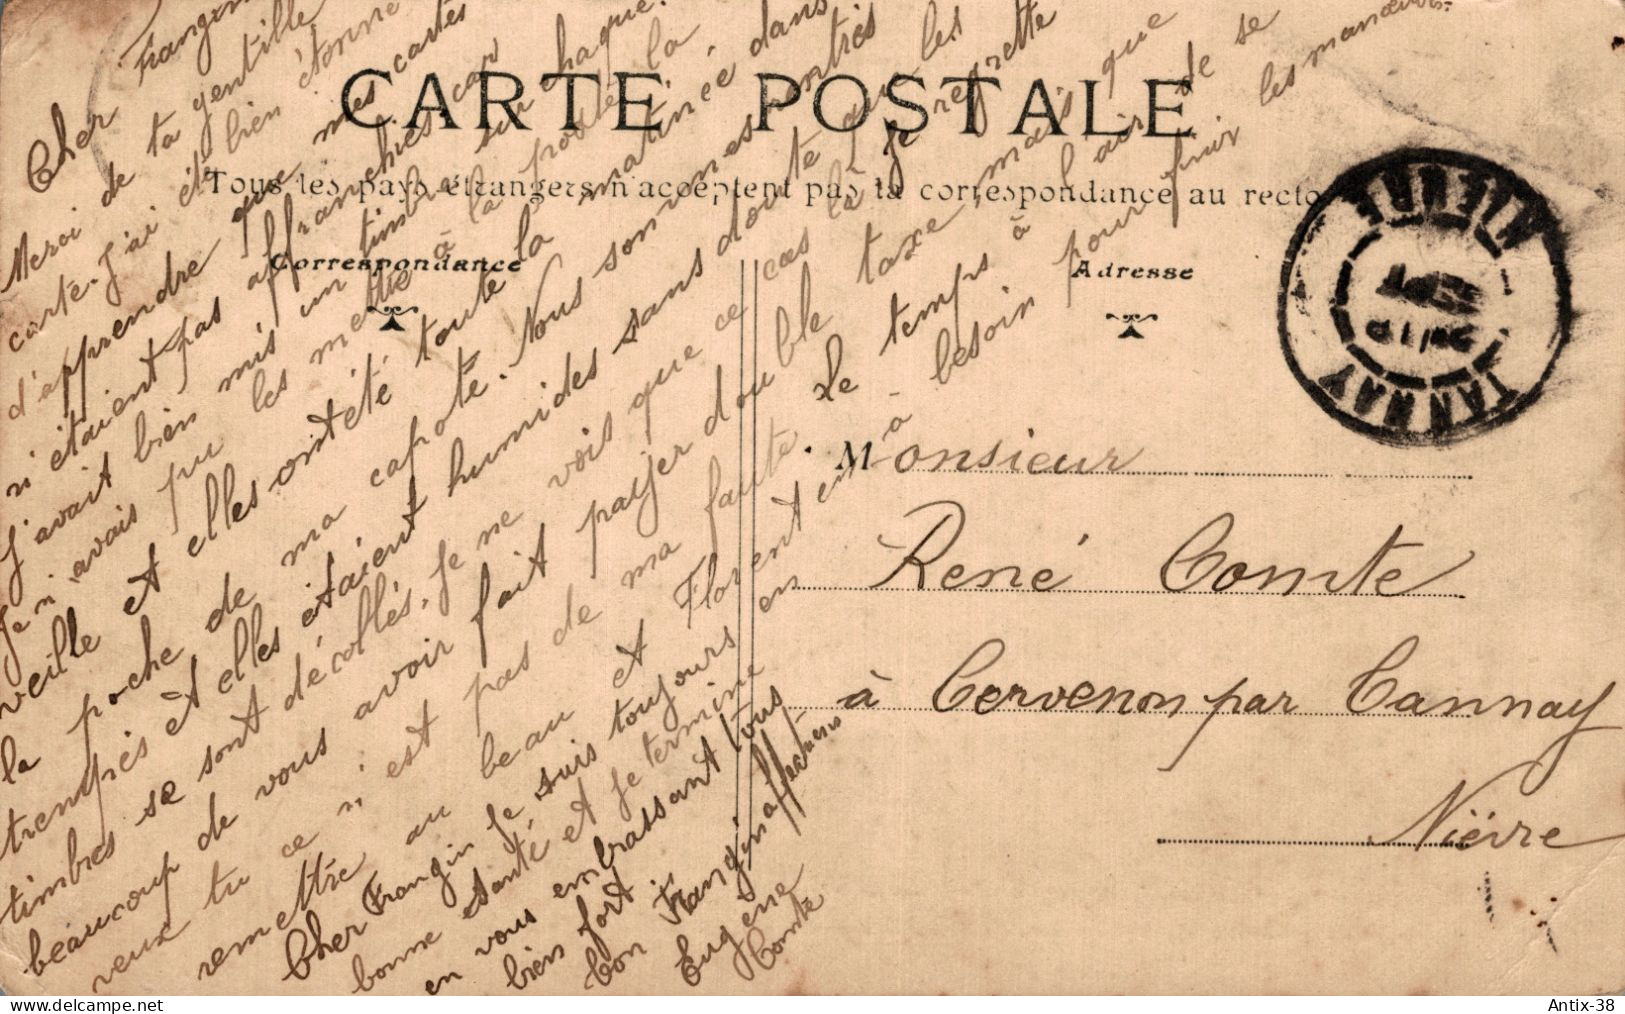 CARTE POSTALE
Tous les pays étrangers n'acceptent pas la correspondance au recto
Correspondance
Adresse
Cher Frangin
Merci de ta gentille
carte. J'ai été bien étonné
d'apprendre que mes cartes
n'étaient pas affranchies car
J'avait bien mis un timbre sur chaque.
Je n'avais pu les mettre à la poste la
veille et elles ont été toute la matinée dans
la poche de ma capote. Nous sommes sortis
trempés et elles étaient humides sans doute que les
timbres se sont décollés. Je ne vois que ce cas là je regrette
beaucoup de vous avoir fait payer double taxe, mais que
veux tu ce n'est pas de ma faute. Le temps à l'air de se
remettre au beau et Florent en à besoin pour finir les manœuvres
Cher Frangin je suis toujours en
bonne santé et je termine
en vous embrassant tous
bien fort
Ton Frangin affectueux
Eugène
Comte
Monsieur
René Comte
à Cervenon par Tannay
Nièvre
TANNAY
NIEVRE
SEPT
delcampe.net
Antix-38